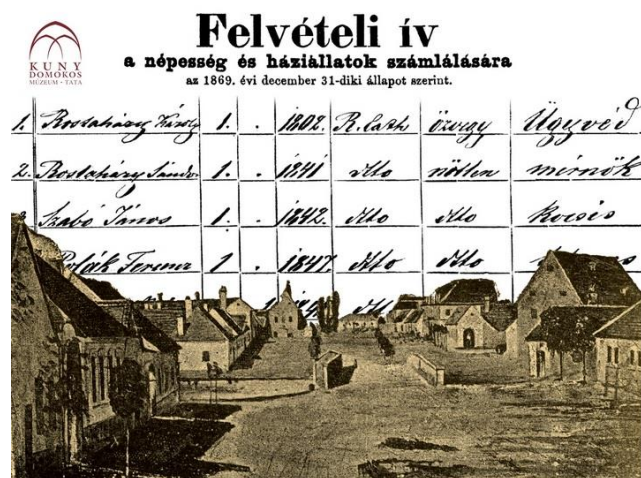 KUNY
DOMOKOS
MÚZEUM - TATA
Felvételi ív
a népesség és háziállatok számlálására
az 1869. évi december 31-diki állapot szerint.
1. Rostaházy Károly 1. . 1802. R. cath özvegy Ügyvéd
2. Rostaházy Sándor 1. . 1841 dtto nőtlen mérnök
Szabó János 1. . 1842. dtto dtto Kocsis
Ferencz 1 . 1847. dtto dtto
dtto